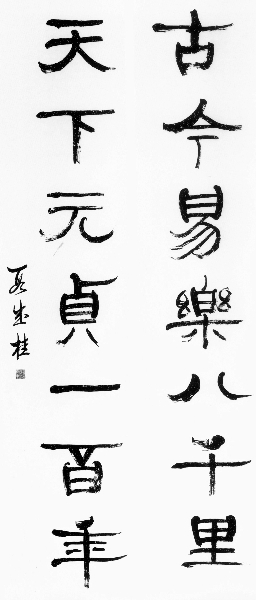 古今易樂八千里
天下元貞一百年